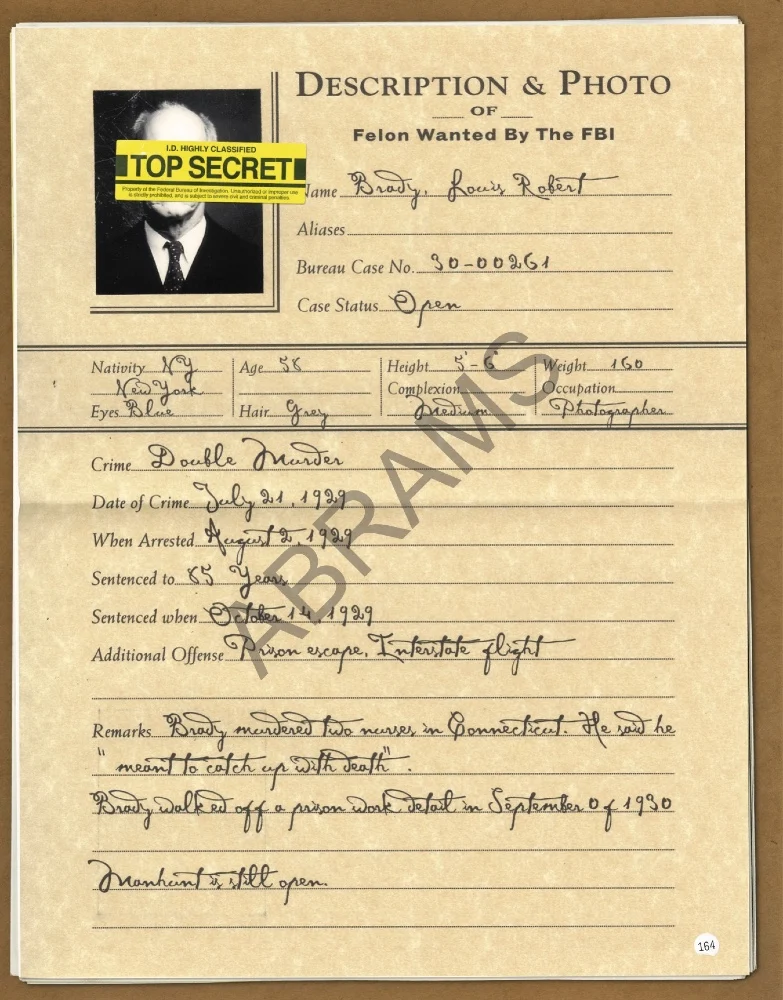 DESCRIPTION & PHOTO
OF
Felon Wanted By The FBI
I.D. HIGHLY CLASSIFIED
TOP SECRET
Property of the Federal Bureau of Investigation. Unauthorized or improper use
is strictly prohibited, and is subject to severe civil and criminal penalties.
Name Brady, Louis Robert
Aliases
Bureau Case No. 30-00261
Case Status Open
Nativity NY Age 58 Height 5'-6" Weight 160
New York Complexion Occupation
Eyes Blue Hair Grey Medium Photographer
Crime Double Murder
Date of Crime July 21, 1929
When Arrested August 2, 1929
Sentenced to 85 Years
Sentenced when October 14, 1929
Additional Offense Prison escape, Interstate flight
Remarks Brady murdered two nurses in Connecticut. He said he
"meant to catch up with death".
Brady walked off a prison work detail in September of 1930
Manhunt is still open.
ABRAMS
164